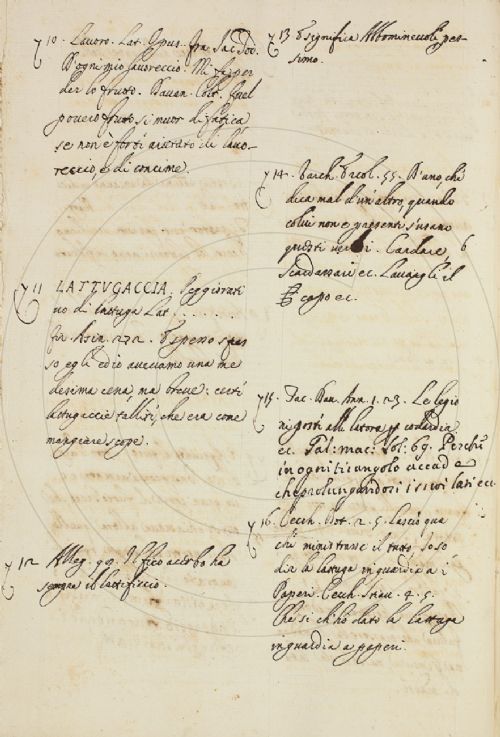 10. Lavoro. Lat. Opus. fra Iac. Tod.
D'ogni mio lavoreccio. Mi fe per
der lo frutto. Davan. Colt. quel
povero frutto si muor di fatica
se non è forti aiutato di lavo-
reccio, e di concime.
11 LATTUGACCIA. Peggiorati
vo di lattuga Lat. . . . . . .
272. E spesso spes
so egli ed io avevamo una me
desima cena, ma breve: certi
lattugacci talliti, che era come
mangiare scope.
12 Alleg. 99. Il fico acerbo ha
sempre il lattificcio.
13 E significa Abbominevole, pes-
simo.
14. Varch. Ercol. 55. D'uno, che
dica mal d'un altro, quando
colui non è presente s'usano
questi verbi. Cardare
scardassare ec. Lavargli il
capo ec.
15. Tac. Dav. Ann. 1. 23. Le legio
ni
ec. Gal: mac: Sol: 69. Perche
in ogni triangolo accade
che prolungandosi i suoi lati ec.
16. Cecch. Dot. 2. 5. Lascio qua
chi ministrare il tutto, so so
dir la lattuga in guardia a i
Paperi. Cecch. Stiav. 4. 5.
Che si ch'ho dato la lattuga
in guardia a paperi.